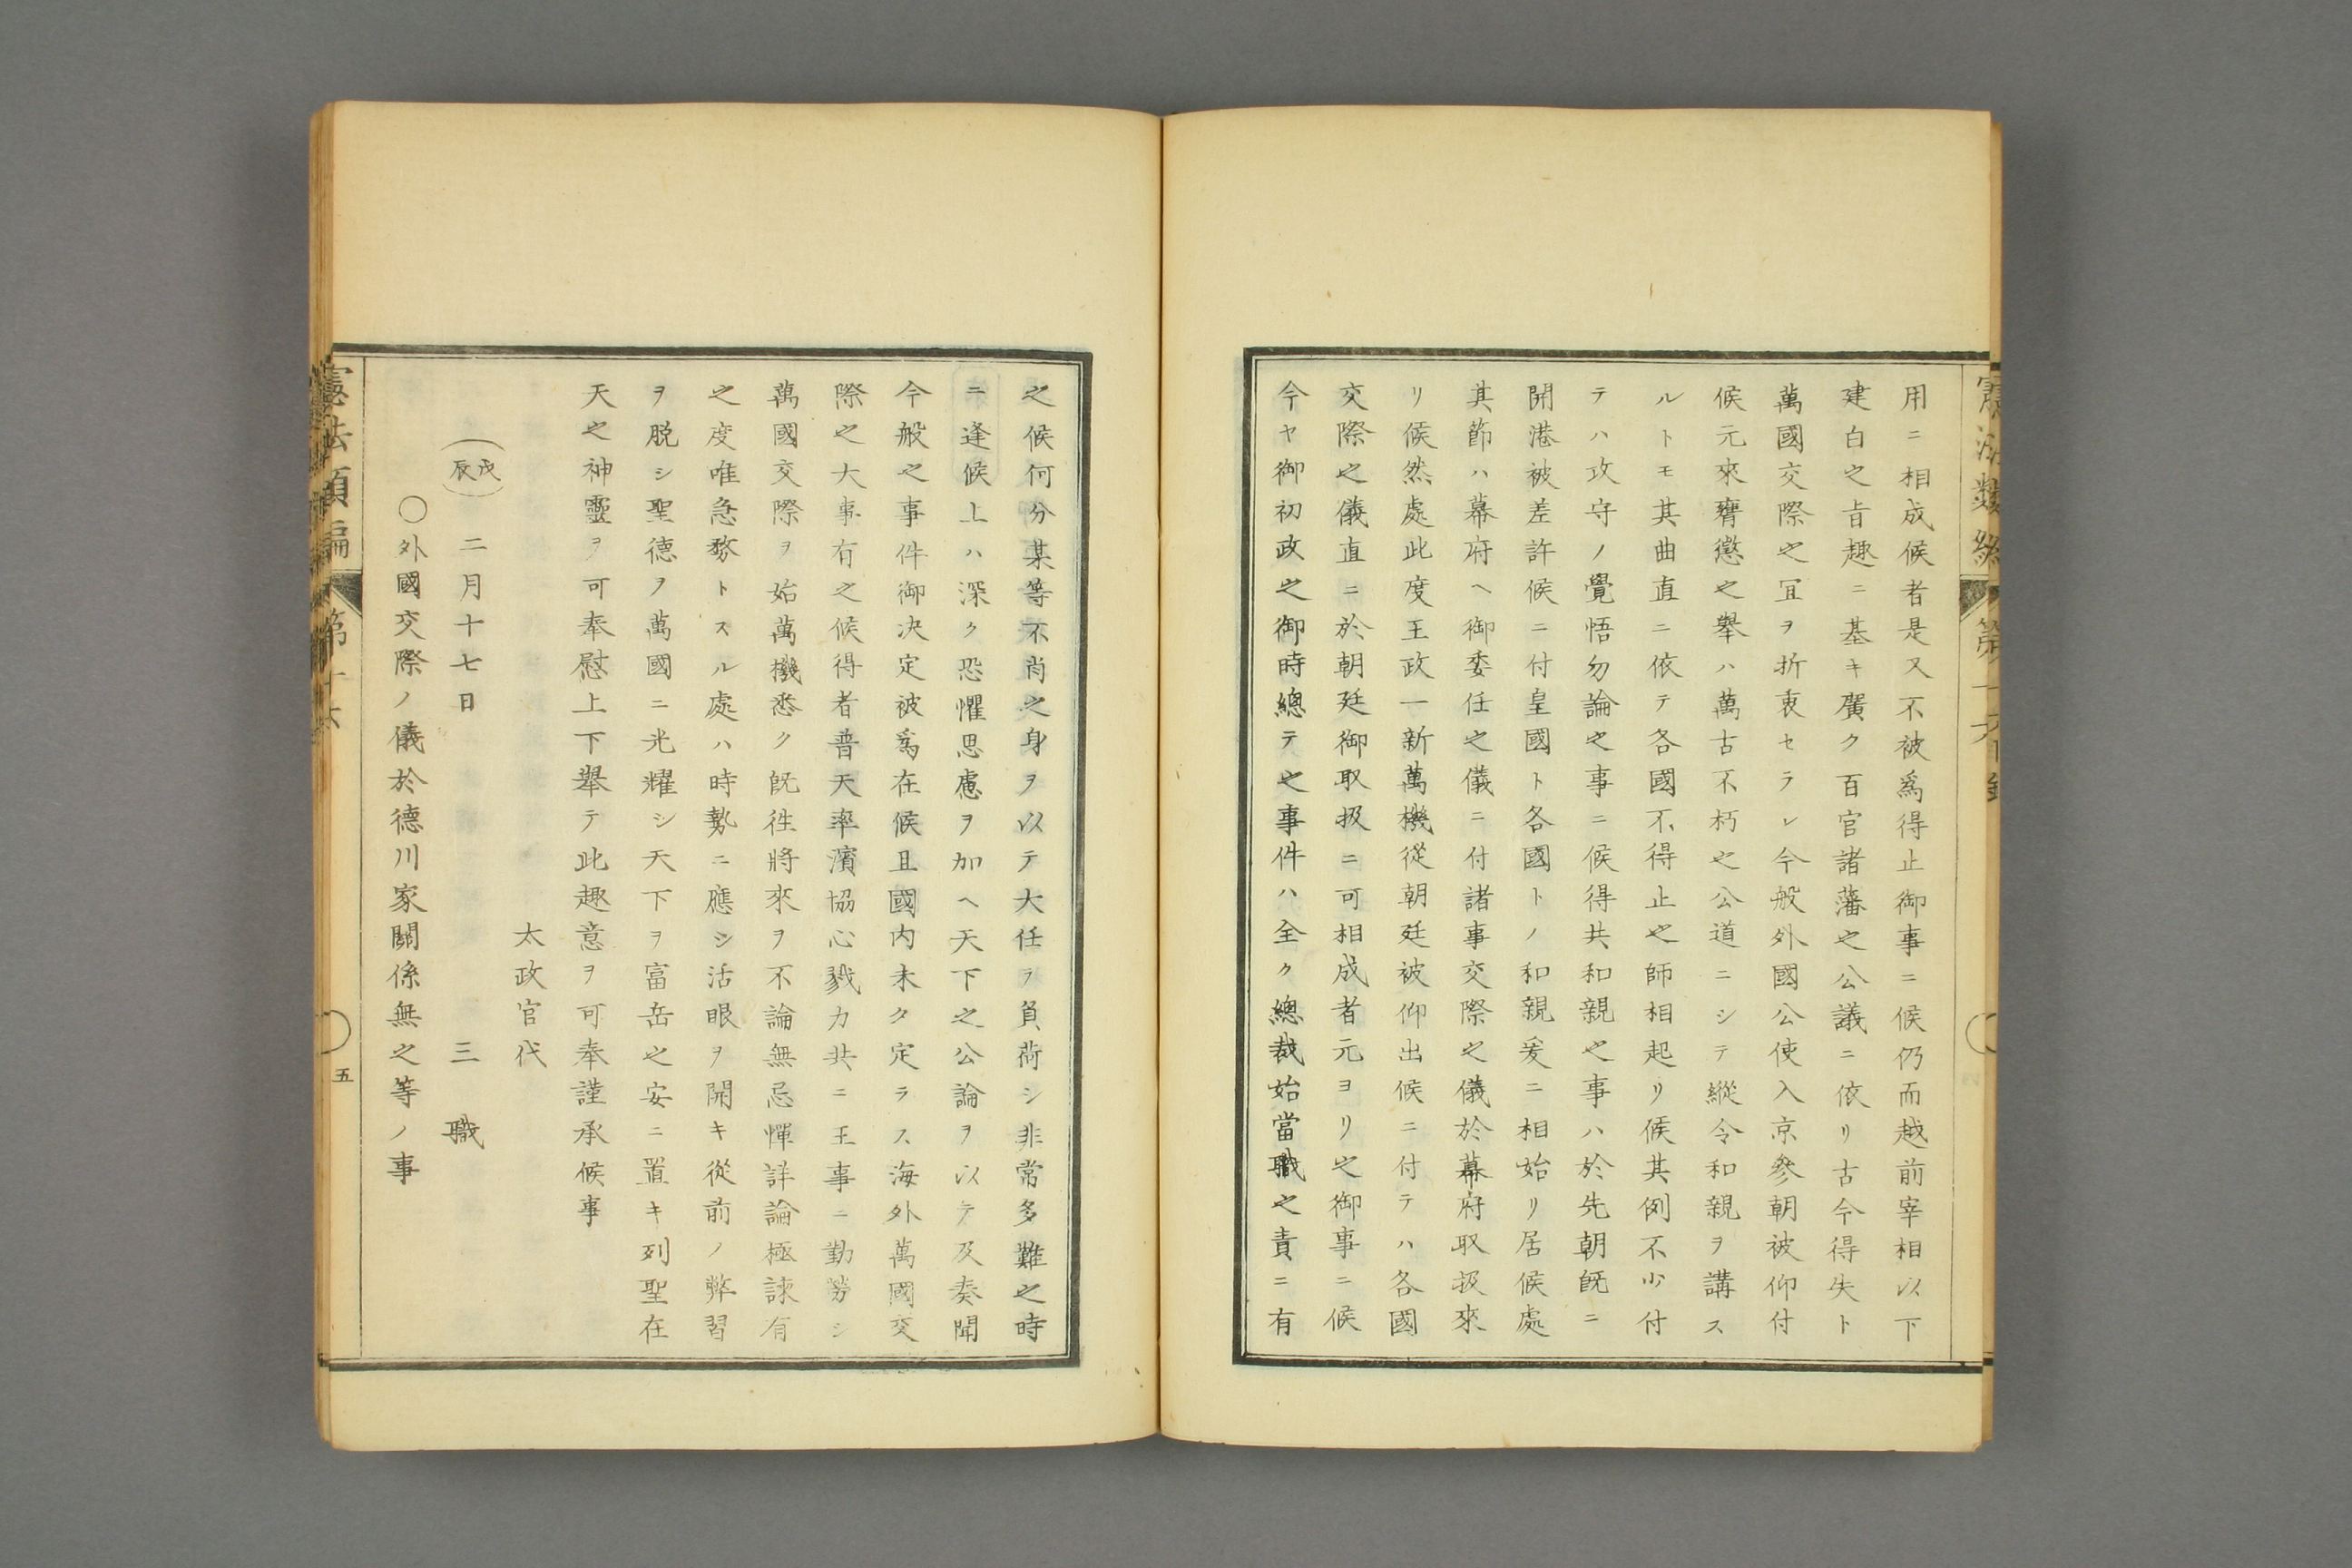 用ニ相成候者是又不被爲得止御事ニ候仍而越前宰相以下
建白之旨趣ニ基キ廣ク百官諸藩之公議ニ依リ古今得失ト
萬國交際之宜ヲ折衷セラレ今般外國公使入京參朝被仰付
候元來膺懲之擧ハ萬古不朽之公道ニシテ縱令和親ヲ講ス
ルトモ其曲直ニ依テ各國不得止之師相起リ候其例不少付
テハ攻守ノ覺悟勿論之事ニ候得共和親之事ハ於先朝既ニ
開港被差許候ニ付皇國ト各國トノ和親爰ニ相始リ居候處
其節ハ幕府ヘ御委任之儀ニ付諸事交際之儀於幕府取扱來
リ候然處此度王政一新萬機從朝廷被仰出候ニ付テハ各國
交際之儀直ニ於朝廷御取扱ニ可相成者元ヨリ之御事ニ候
今ヤ御初政之御時總テ之事件ハ全ク總裁始當職之責ニ有
之候何分某等不肖之身ヲ以テ大任ヲ負荷シ非常多難之時
ニ逢候上ハ深ク恐懼思慮ヲ加ヘ天下之公論ヲ以テ及奏聞
今般之事件御决定被爲在候且國内未タ定ラス海外萬國交
際之大事有之候得者普天率濱協心戮力共ニ王事ニ勤勞シ
萬國交際ヲ始萬機悉ク既徃將來ヲ不論無忌憚詳論極諫有
之度唯急務トスル處ハ時勢ニ應シ活眼ヲ開キ從前ノ弊習
ヲ脱シ聖德ヲ萬國ニ光耀シ天下ヲ富岳之安ニ置キ列聖在
天之神靈ヲ可奉慰上下擧テ此趣意ヲ可奉謹承候事
太政官代
（戊辰）二月十七日　三職
〇外國交際ノ儀於德川家關係無之等ノ事
憲法類編 第十六
五